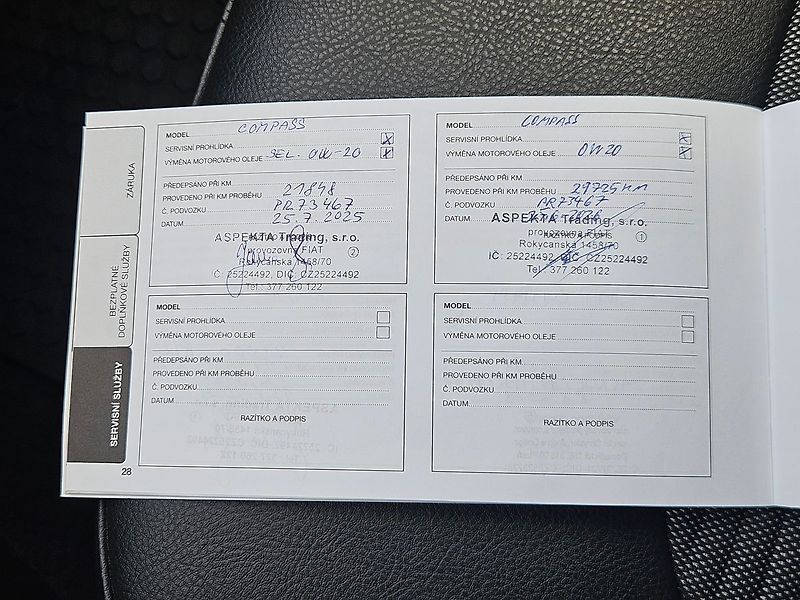 ZÁRUKA
BEZPLATNÉ
DOPLŇKOVÉ SLUŽBY
SERVISNÍ SLUŽBY
28
MODEL COMPASS
SERVISNÍ PROHLÍDKA X
VÝMĚNA MOTOROVÉHO OLEJE SEL. 0W-20 X
PŘEDEPSÁNO PŘI KM
PROVEDENO PŘI KM PROBĚHU 21848
Č. PODVOZKU PR73467
DATUM 25.7.2025
ASPEKTA Trading, s.r.o.
provozovna FIAT
Rokycanská 1458/70 2
IČ: 25224492, DIČ: CZ25224492
Tel.: 377 260 122
MODEL COMPASS
SERVISNÍ PROHLÍDKA X
VÝMĚNA MOTOROVÉHO OLEJE 0W20 X
PŘEDEPSÁNO PŘI KM
PROVEDENO PŘI KM PROBĚHU 29725 KM
Č. PODVOZKU PR73467
DATUM
ASPEKTA Trading, s.r.o.
RAZÍTKO A PODPIS
provozovna FIAT 1
Rokycanská 1458/70
IČ: 25224492, DIČ: CZ25224492
Tel.: 377 260 122
MODEL
SERVISNÍ PROHLÍDKA
VÝMĚNA MOTOROVÉHO OLEJE
PŘEDEPSÁNO PŘI KM
PROVEDENO PŘI KM PROBĚHU
Č. PODVOZKU
DATUM
RAZÍTKO A PODPIS
MODEL
SERVISNÍ PROHLÍDKA
VÝMĚNA MOTOROVÉHO OLEJE
PŘEDEPSÁNO PŘI KM
PROVEDENO PŘI KM PROBĚHU
Č. PODVOZKU
DATUM
RAZÍTKO A PODPIS